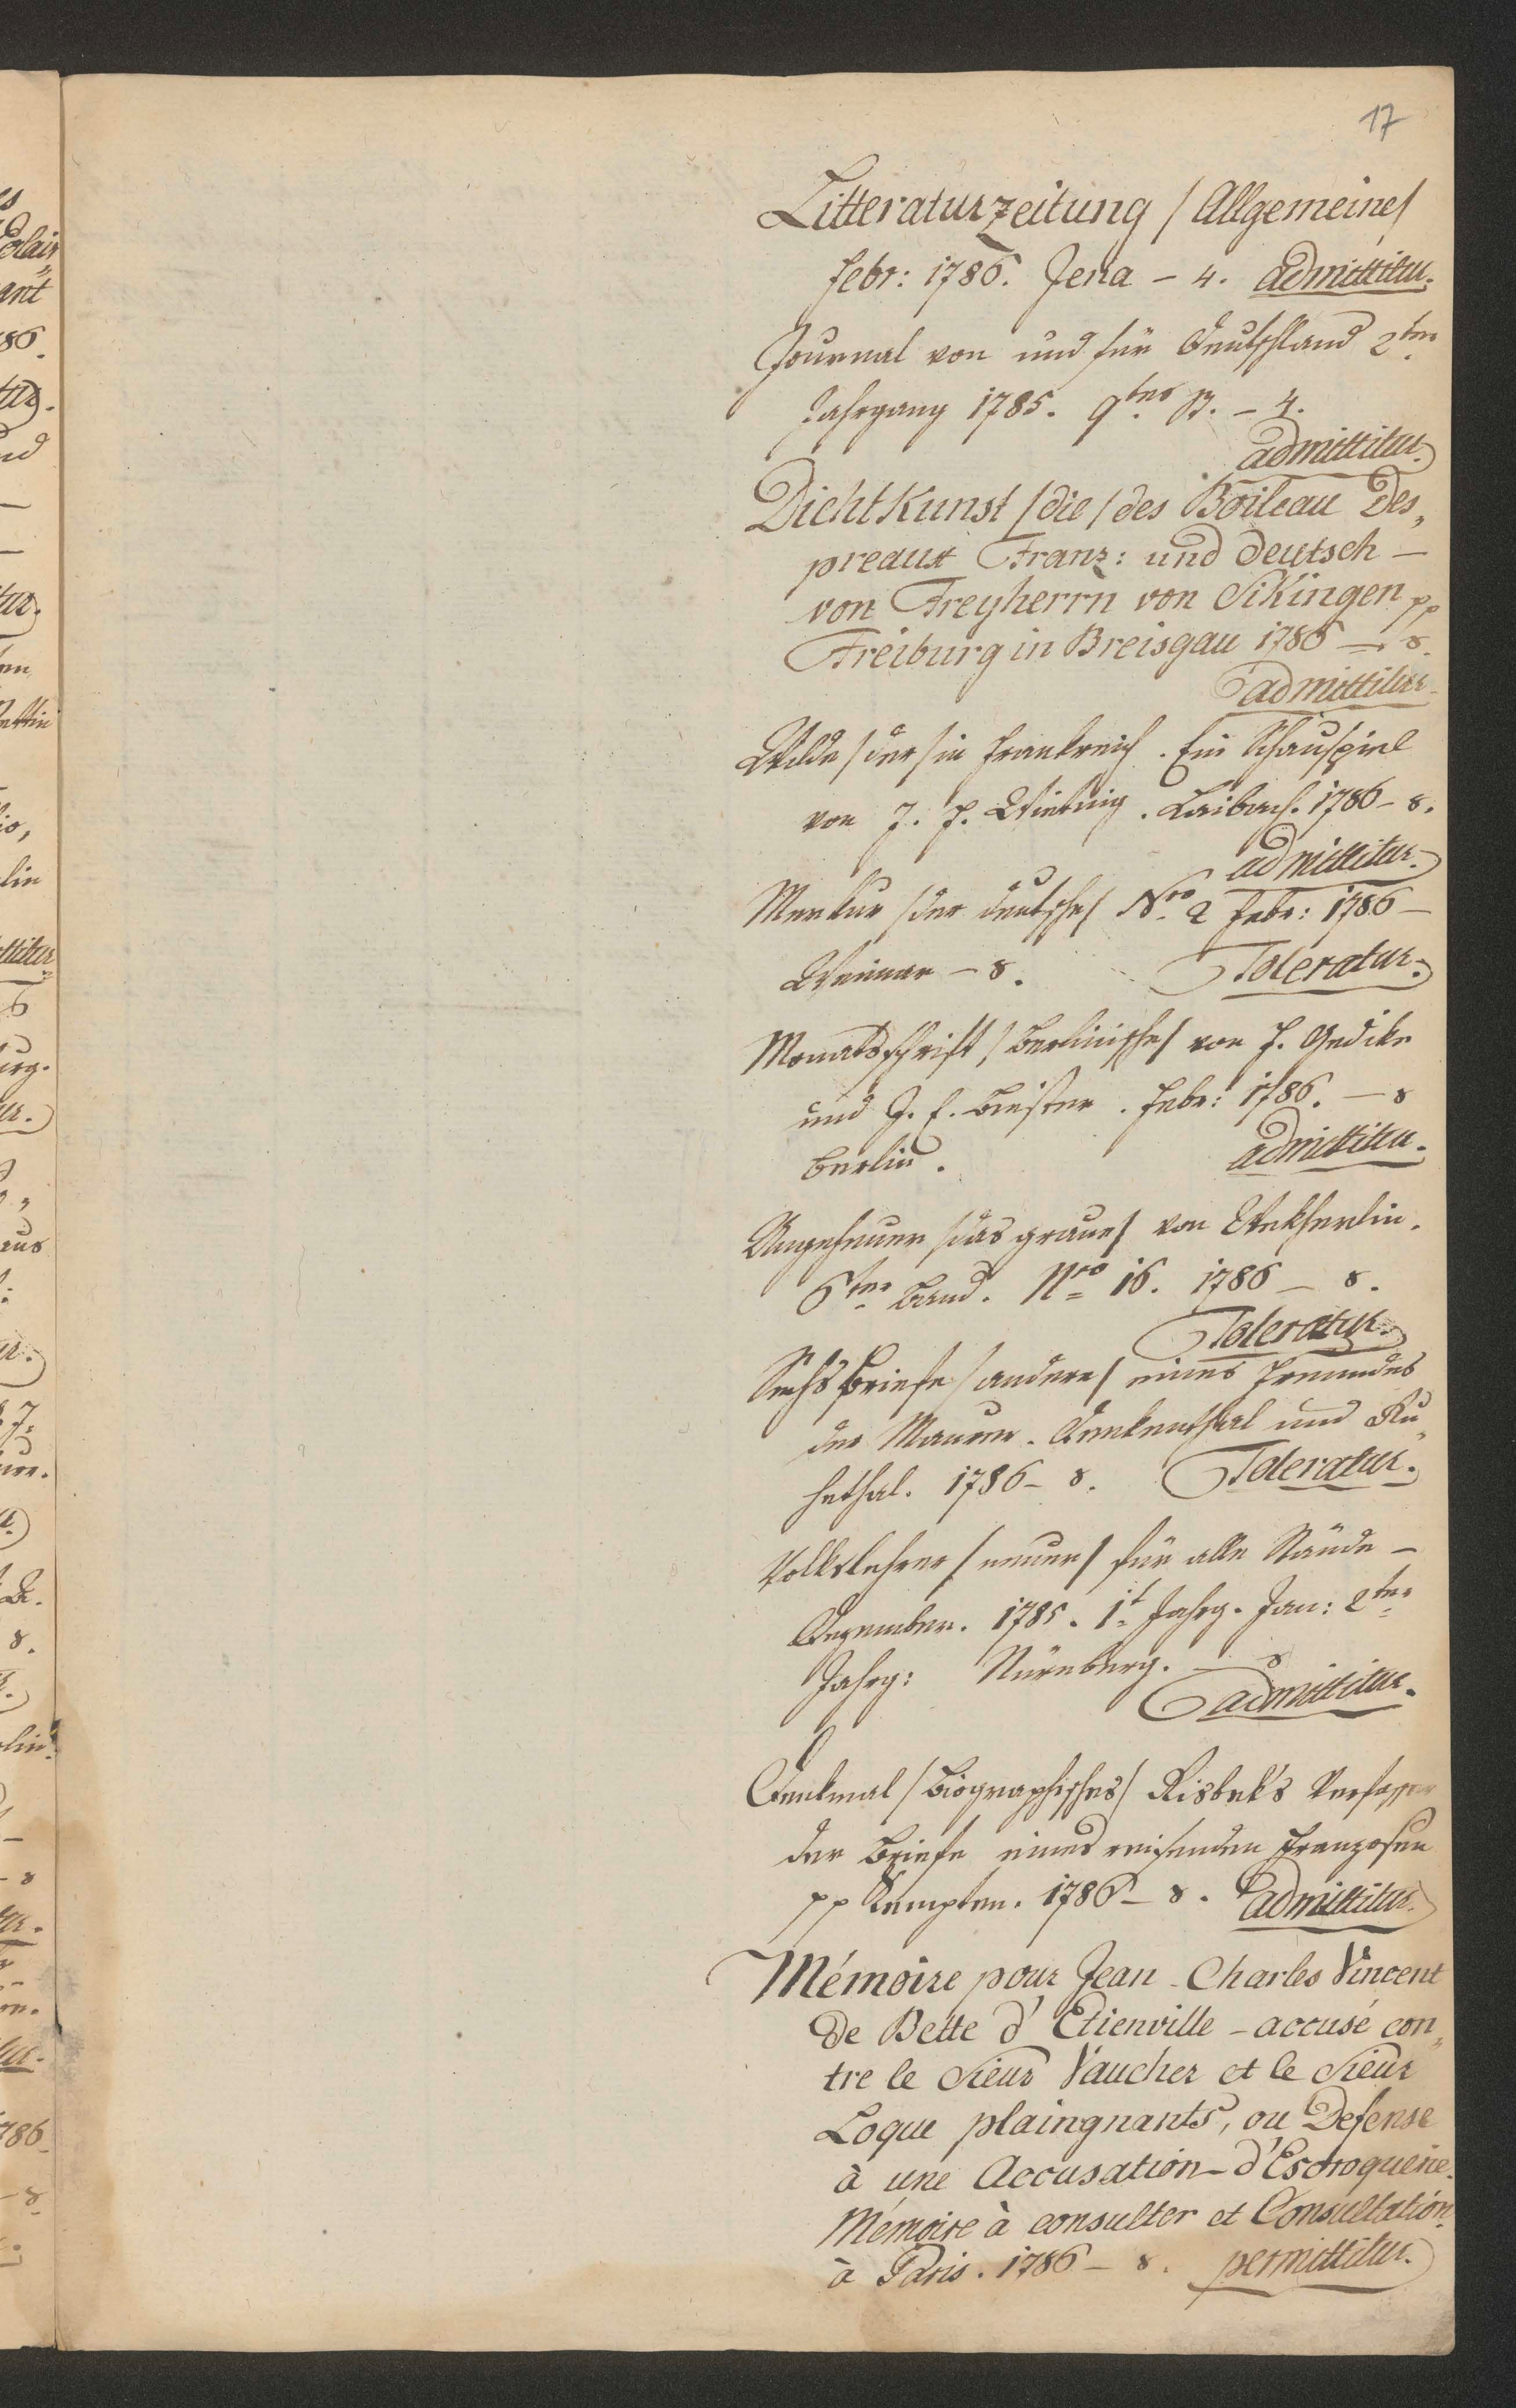 17
Litteraturzeitung /Allgemeine/
febr: 1786. Jena - 4. admittitur.
Journal von und für Deutschland 2ter
Jahrgang 1785. 9tes St. - 4.
admittitur.
Dichtkunst /die/ des Boileau Des„
preaux Franz: und deutsch -
von Freyherrn von Sikingen pp
Freiburg in Breisgau 1786 - 8.
admittitur
Wilde /der/ in Frankreich. Ein Schauspiel
von J. J. Wieting. Laibach. 1786 - 8.
admittitur.
Merkur /der deutsche/ Nro 2 Febr: 1786 -
Weimar - 8. Toleratur.
Monatsschrift /Berlinische/ von F. Gedike
und J. E. Biester. Febr: 1786. - 8
Berlin. admittitur.
Ungeheuer /das graue/ von Wekherlin.
6ter Band. Nro 16. 1786 - 8.
Toleratur.
Sechs Briefe /andere/ eines Freundes
der Maurer. Denkenthal und Ru„
hethal. 1786 - 8. Toleratur.
Volkslehrer /neuer/ für alle Stände -
Dezember. 1785. 1t Jahrg. Jan: 2ter
Jahrg: Nürnberg. - 8
admittitur.
Denkmal /Biographisches/ Risbek's Verfasser
der Briefe eines reisenden Franzosen
pp Kempten. 1786 - 8. admittitur.
Mémoire pour Jean - Charles Vincent
De Bette d' Etienville - accusé con„
tre le Sieur Vaucher et le Sieur
Loque plaingnants, ou Defense
à une Accusation - d'Escroquerie.
Mémoire à consulter et Consultation.
à Paris. 1786 - 8. permittitur.